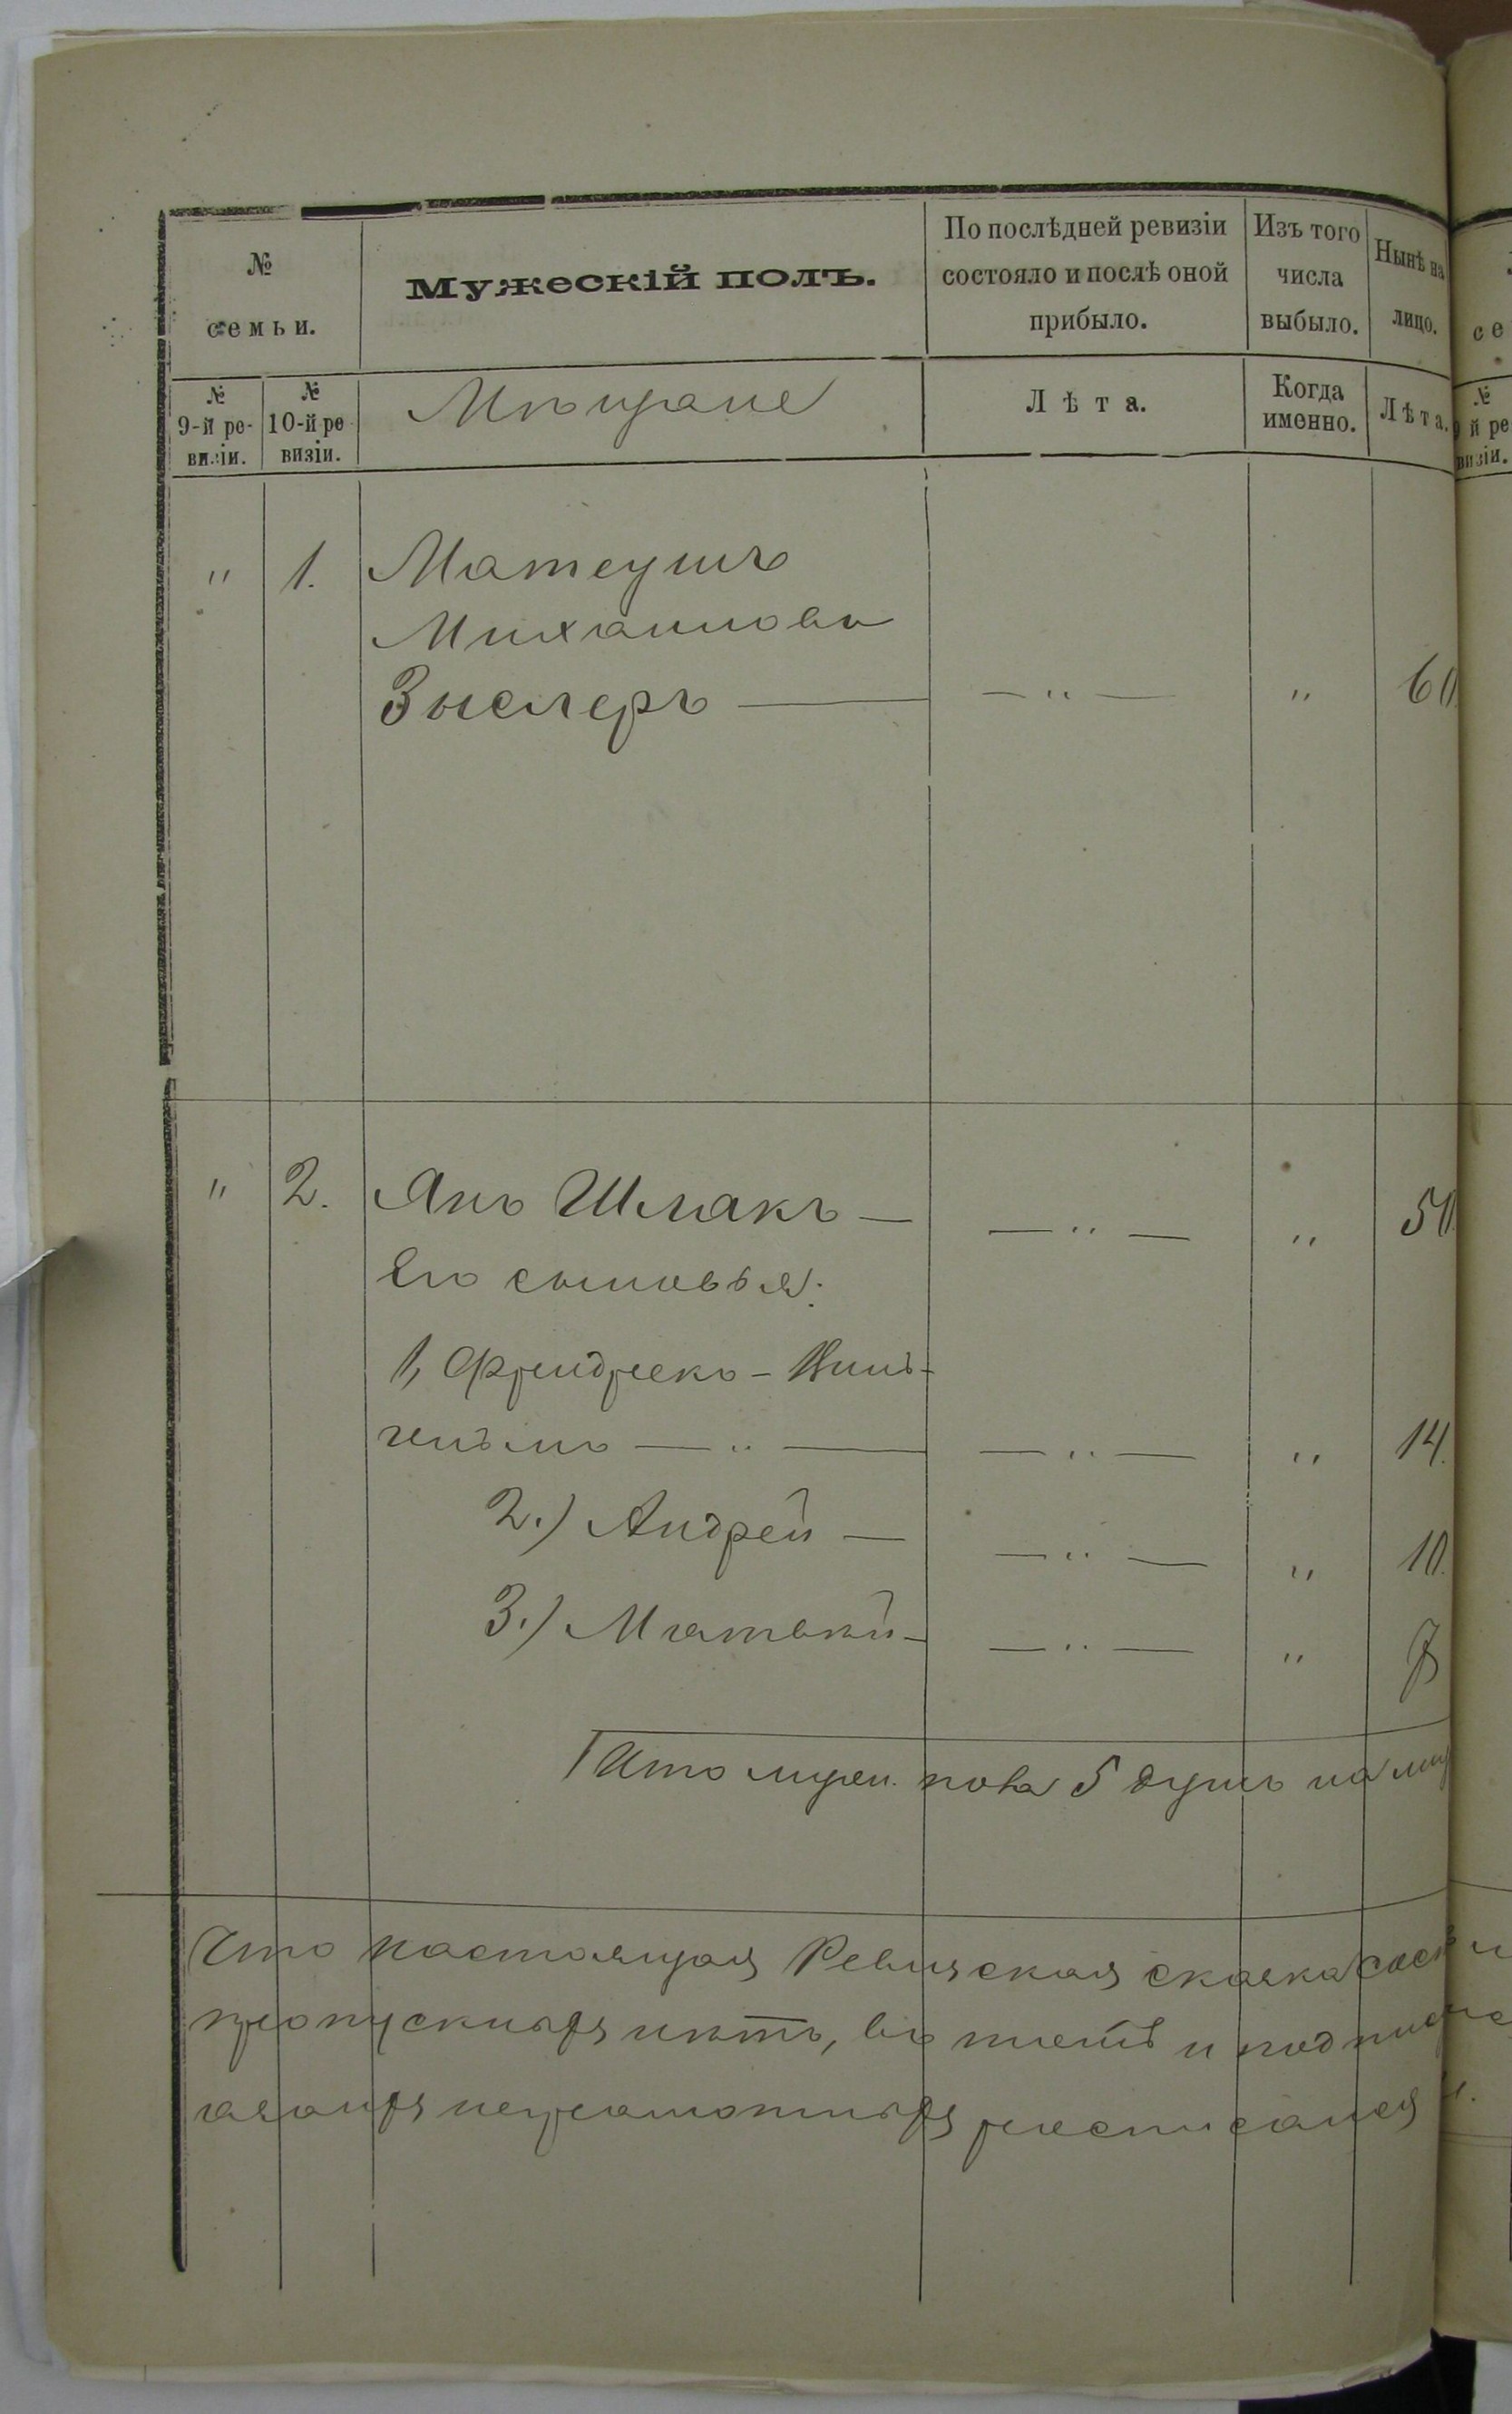 № семьи.
Мужескій полъ.
По послѣдней ревизіи состояло и послѣ оной прибыло.
Изъ того числа выбыло.
Нынѣ на лицо.
№ 9-й ревизіи.
№ 10-й ревизіи.
Мѣщане
Лѣта.
Когда именно.
Лѣта.
" 1. Матеушъ
Михаиловъ
Зыслеръ — — " — " 60.
" 2. Янъ Шлакъ — — " — " 50.
Его сыновья:
1, Фридрихъ - Виль-
гельмъ — " — — " — " 14.
2.) Андрей — — " — " 10.
3.) Матвѣй - — " — " 8
Итого мужеск. пола 5 душъ на
Что настоящая Ревизская сказка
пропускныхъ нѣтъ, въ томъ и
неграмотныхъ росписался